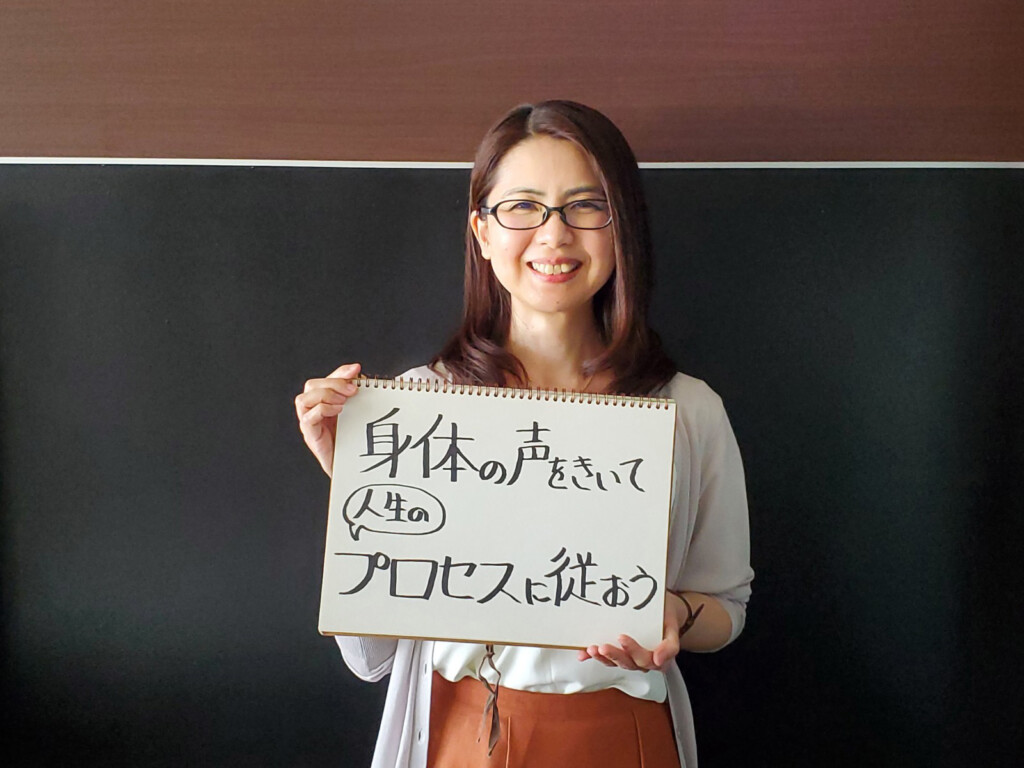 身体の声をきいて
人生の
プロセスに従おう